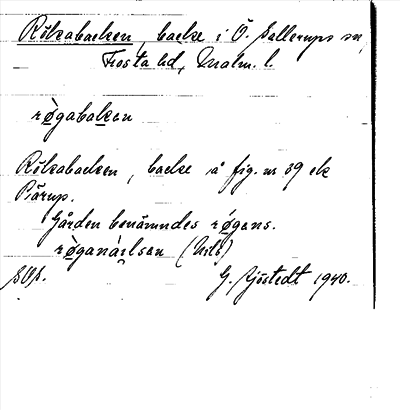 Rökabacken, backe i Ö. Sallerups sn,
Frosta hd, Malm. l.
rögabakan
Rökabacken, backe å fig. nr 39 ek
Pärup.
Gården benämndes rögans.
röganärlsan (Nils)
G. Sjöstedt 1940.